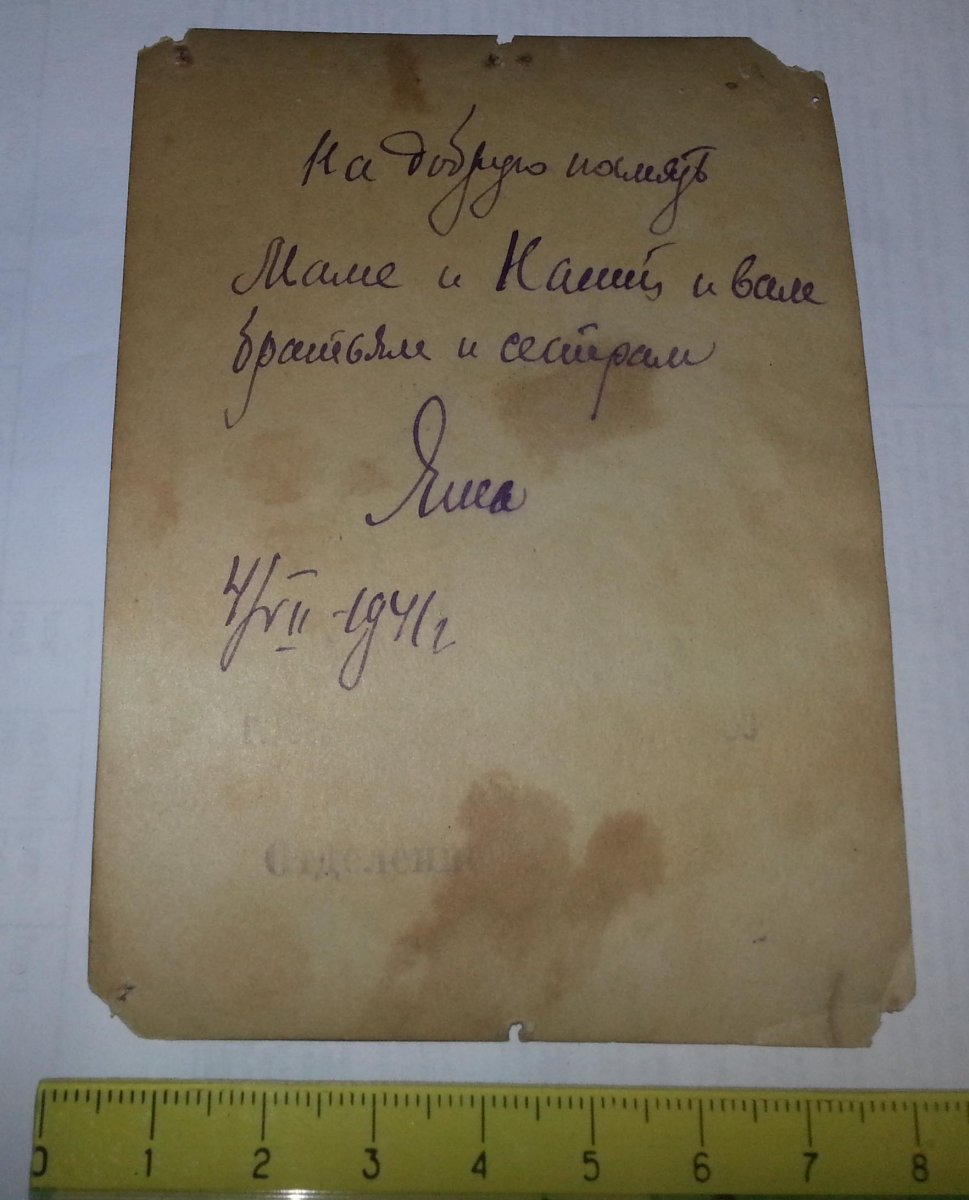 На добрую память
Маме и и вам
братьям и сестрам
Яша
4/VII-1941г
Отделени
0 1 2 3 4 5 6 7 8